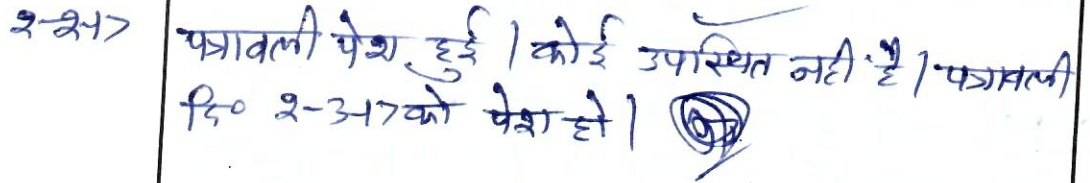 2-2-17 पत्रावली पेश हुई। कोई उपस्थित नही है। पत्रावली
दि० 2-3-17 को पेश हो।